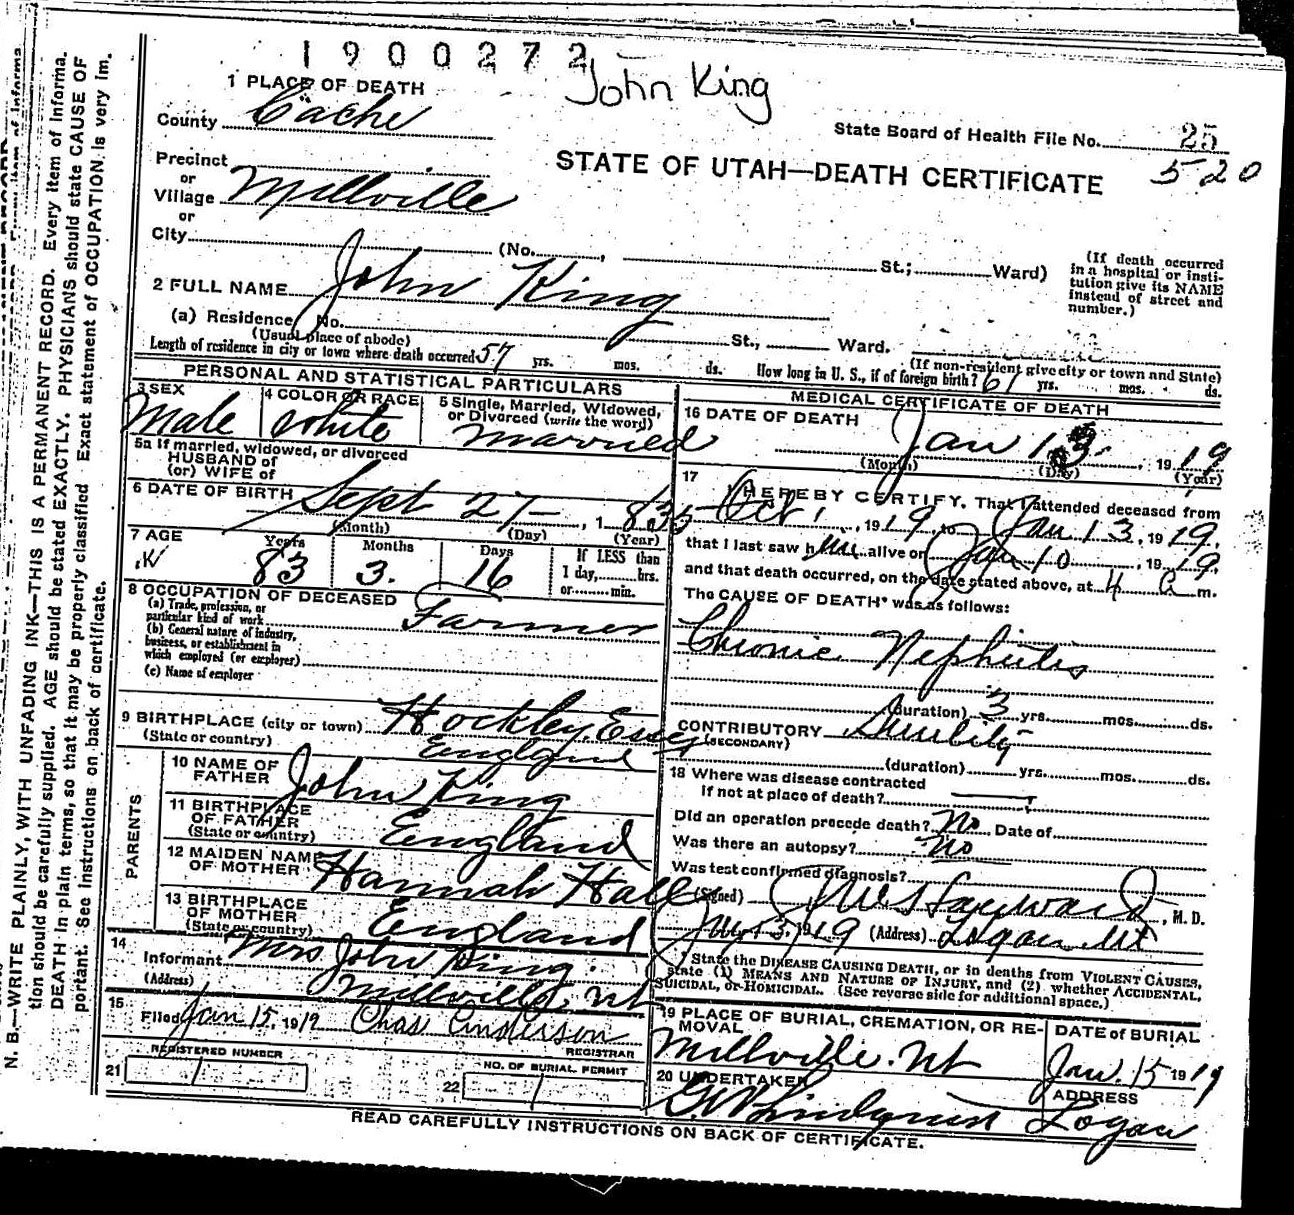 1900272
John King
1 PLACE OF DEATH
County Cache
State Board of Health File No. 25
520
STATE OF UTAH—DEATH CERTIFICATE
Precinct
or
Village Millville
or
City (No. , St.; Ward)
(If death occurred
in a hospital or insti-
tution give its NAME
instead of street and
number.)
2 FULL NAME John King
(a) Residence No. St., Ward.
(Usual place of abode)
(If non-resident give city or town and State)
Length of residence in city or town where death occurred 57 yrs. mos. ds. How long in U. S., if of foreign birth? 61 yrs. mos. ds.
PERSONAL AND STATISTICAL PARTICULARS
3 SEX
Male
4 COLOR OR RACE
white
5 Single, Married, Widowed,
or Divorced (write the word)
married
5a If married, widowed, or divorced
HUSBAND of
(or) WIFE of
6 DATE OF BIRTH Sept 27 , 1835
(Month) (Day) (Year)
7 AGE Years Months Days If LESS than
1 day,......hrs.
or......min.
83 3. 16
8 OCCUPATION OF DECEASED
(a) Trade, profession, or
particular kind of work Farmer
(b) General nature of industry,
business, or establishment in
which employed (or employer)
(c) Name of employer
9 BIRTHPLACE (city or town) Hockley, Essex
(State or country) England
PARENTS
10 NAME OF
FATHER John King
11 BIRTHPLACE
OF FATHER
(State or country) England
12 MAIDEN NAME
OF MOTHER Hannah Hall
13 BIRTHPLACE
OF MOTHER
(State or country) England
14
Informant Mrs John King.
(Address) Millville, Ut
15
Filed Jan 15, 1919 Chas Anderson
REGISTRAR
21 REGISTERED NUMBER
1
22 NO. OF BURIAL PERMIT
1
MEDICAL CERTIFICATE OF DEATH
16 DATE OF DEATH
Jan 13. , 1919
(Month) (Day) (Year)
17
I HEREBY CERTIFY, That I attended deceased from
Oct 1 , 1919, to Jan 13, 1919.
that I last saw him alive on Jan 10 , 1919.
and that death occurred, on the date stated above, at 4 a m.
The CAUSE OF DEATH* was as follows:
Chronic Nephritis
(duration) 3 yrs. mos. ds.
CONTRIBUTORY
(SECONDARY)
(duration) yrs. mos. ds.
18 Where was disease contracted
if not at place of death?
Did an operation precede death? No Date of
Was there an autopsy? No
Was test confirmed diagnosis?
(Signed) Hayward, M. D.
Jan 13, 1919 (Address) Logan, Ut
State the DISEASE CAUSING DEATH, or in deaths from VIOLENT CAUSES,
state (1) MEANS AND NATURE OF INJURY, and (2) whether ACCIDENTAL,
SUICIDAL, or HOMICIDAL. (See reverse side for additional space.)
19 PLACE OF BURIAL, CREMATION, OR RE-
MOVAL
Millville. Ut
DATE of BURIAL
Jan. 15 1919
20 UNDERTAKER
Lindquist
ADDRESS
Logan
READ CAREFULLY INSTRUCTIONS ON BACK OF CERTIFICATE.
N. B.—WRITE PLAINLY, WITH UNFADING INK—THIS IS A PERMANENT RECORD. Every item of informa-
tion should be carefully supplied. AGE should be stated EXACTLY. PHYSICIANS should state CAUSE OF
DEATH in plain terms, so that it may be properly classified. Exact statement of OCCUPATION is very im-
portant. See instructions on back of certificate.